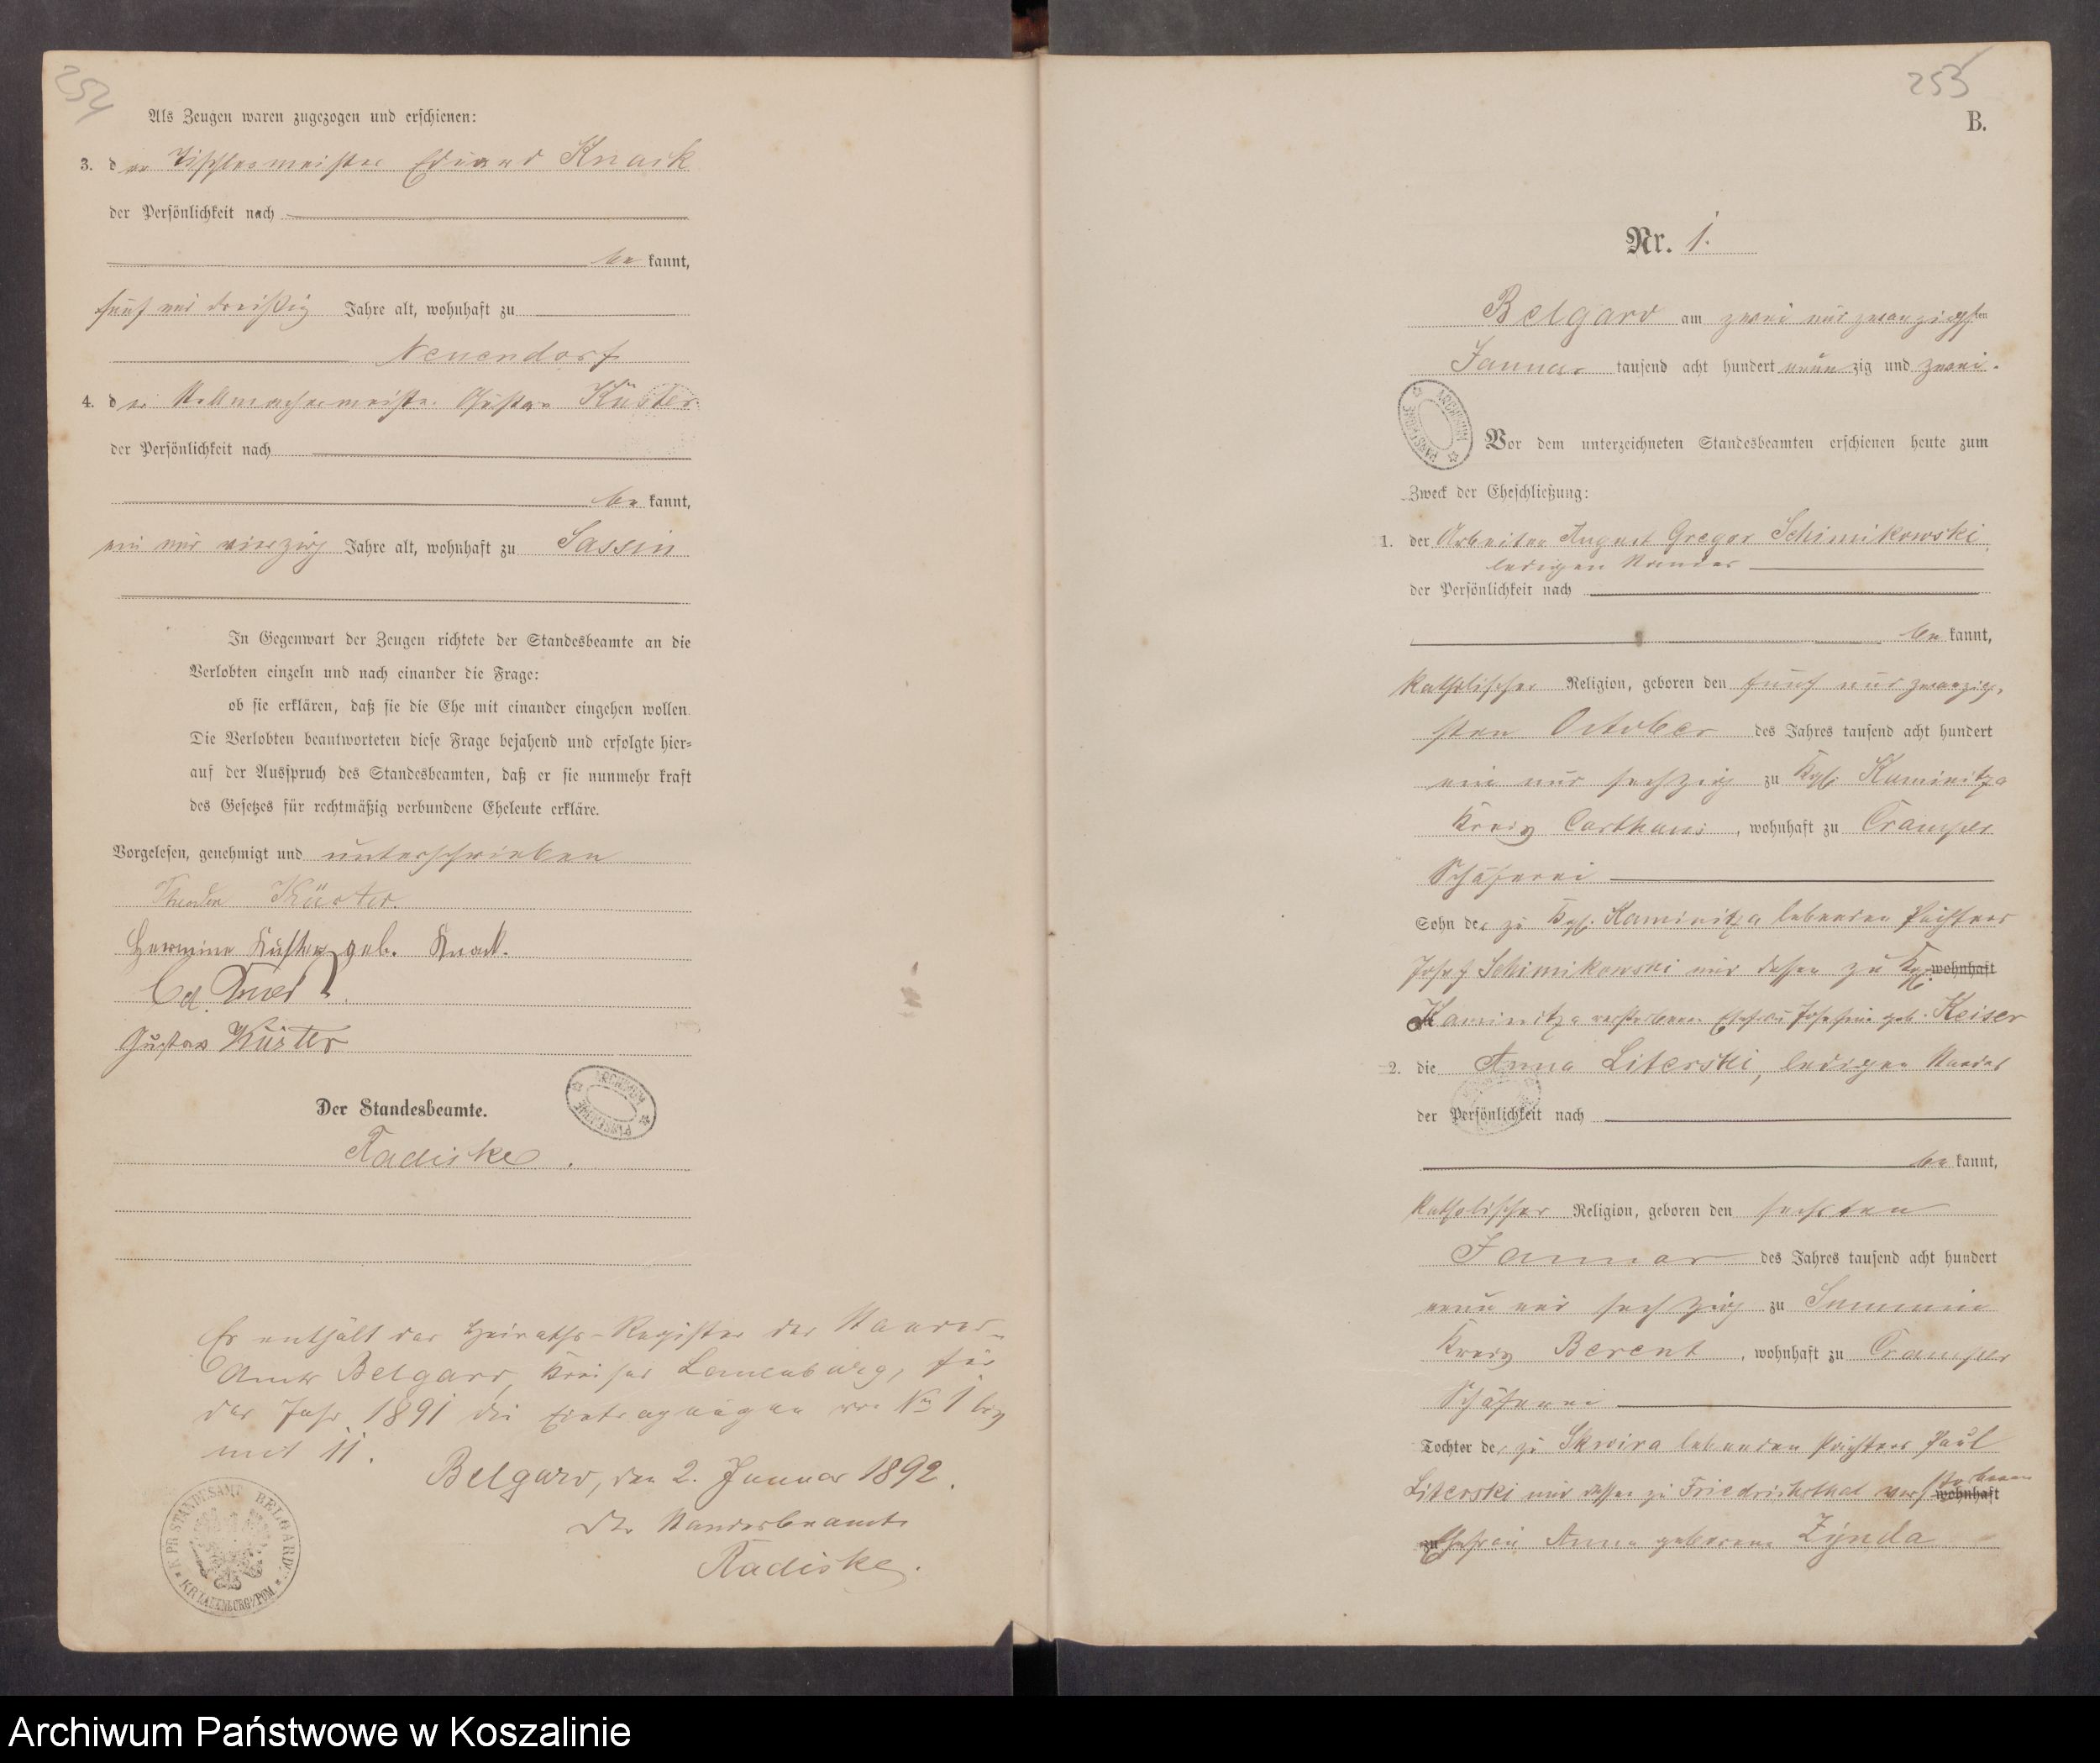 254
Als Zeugen waren zugezogen und erschienen:
3. der Tischlermeister Eduard Knack
der Persönlichkeit nach
be kannt,
fünf und dreißig Jahre alt, wohnhaft zu
Neuendorf
4. der Stellmachermeister Gustav Küster
der Persönlichkeit nach
be kannt,
ein und vierzig Jahre alt, wohnhaft zu Sassin
In Gegenwart der Zeugen richtete der Standesbeamte an die
Verlobten einzeln und nach einander die Frage:
ob sie erklären, daß sie die Ehe mit einander eingehen wollen.
Die Verlobten beantworteten diese Frage bejahend und erfolgte hier-
auf der Ausspruch des Standesbeamten, daß er sie nunmehr kraft
des Gesetzes für rechtmäßig verbundene Eheleute erkläre.
Vorgelesen, genehmigt und unterschrieben
Theodor Küster
Hermine Küster geb. Knack.
Ed.
Gustav Küster
ARCHIWUM PAŃSTWOWE
Der Standesbeamte.
Radiske.
Es enthält das Heiraths-Register des Standes-
Amts Belgard, Kreises Lauenburg, für
das Jahr 1891 die Eintragungen von No 1 bis
mit 11.
Belgard, den 2. Januar 1892.
Der Standesbeamte
Radiske.
K. PR. STANDESAMT BELGARD
KR. LAUENBURG i/POM.
255
B.
Nr. 1.
Belgard am zwei und zwanzigsten
Januar tausend acht hundert neun zig und zwei.
ARCHIWUM PAŃSTWOWE
Vor dem unterzeichneten Standesbeamten erschienen heute zum
Zweck der Eheschließung:
1. der Arbeiter August Gregor Schimikowski,
ledigen Standes
der Persönlichkeit nach
be kannt,
katholischer Religion, geboren den fünf und zwanzig-
sten October des Jahres tausend acht hundert
ein und sechzig zu Kgl. Kaminitza
Kreis Carthaus, wohnhaft zu Cramper
Schäferei
Sohn des zu Kgl. Kaminitza lebenden Pächters
Josef Schimikowski und dessen zu Kgl. wohnhaft
Kaminitza verstorbenen Ehefrau Josefine geb. Keiser
2. die Anna Literski, ledigen Standes
der Persönlichkeit nach
be kannt,
katholischer Religion, geboren den sechsten
Januar des Jahres tausend acht hundert
neun und sechzig zu Summin
Kreis Berent, wohnhaft zu Cramper
Schäferei
Tochter des zu Skwira lebenden Pächters Paul
Literski und dessen zu Friedrichsthal verstorbenen wohnhaft
zu Ehefrau Anna geborene Zynda
Archiwum Państwowe w Koszalinie